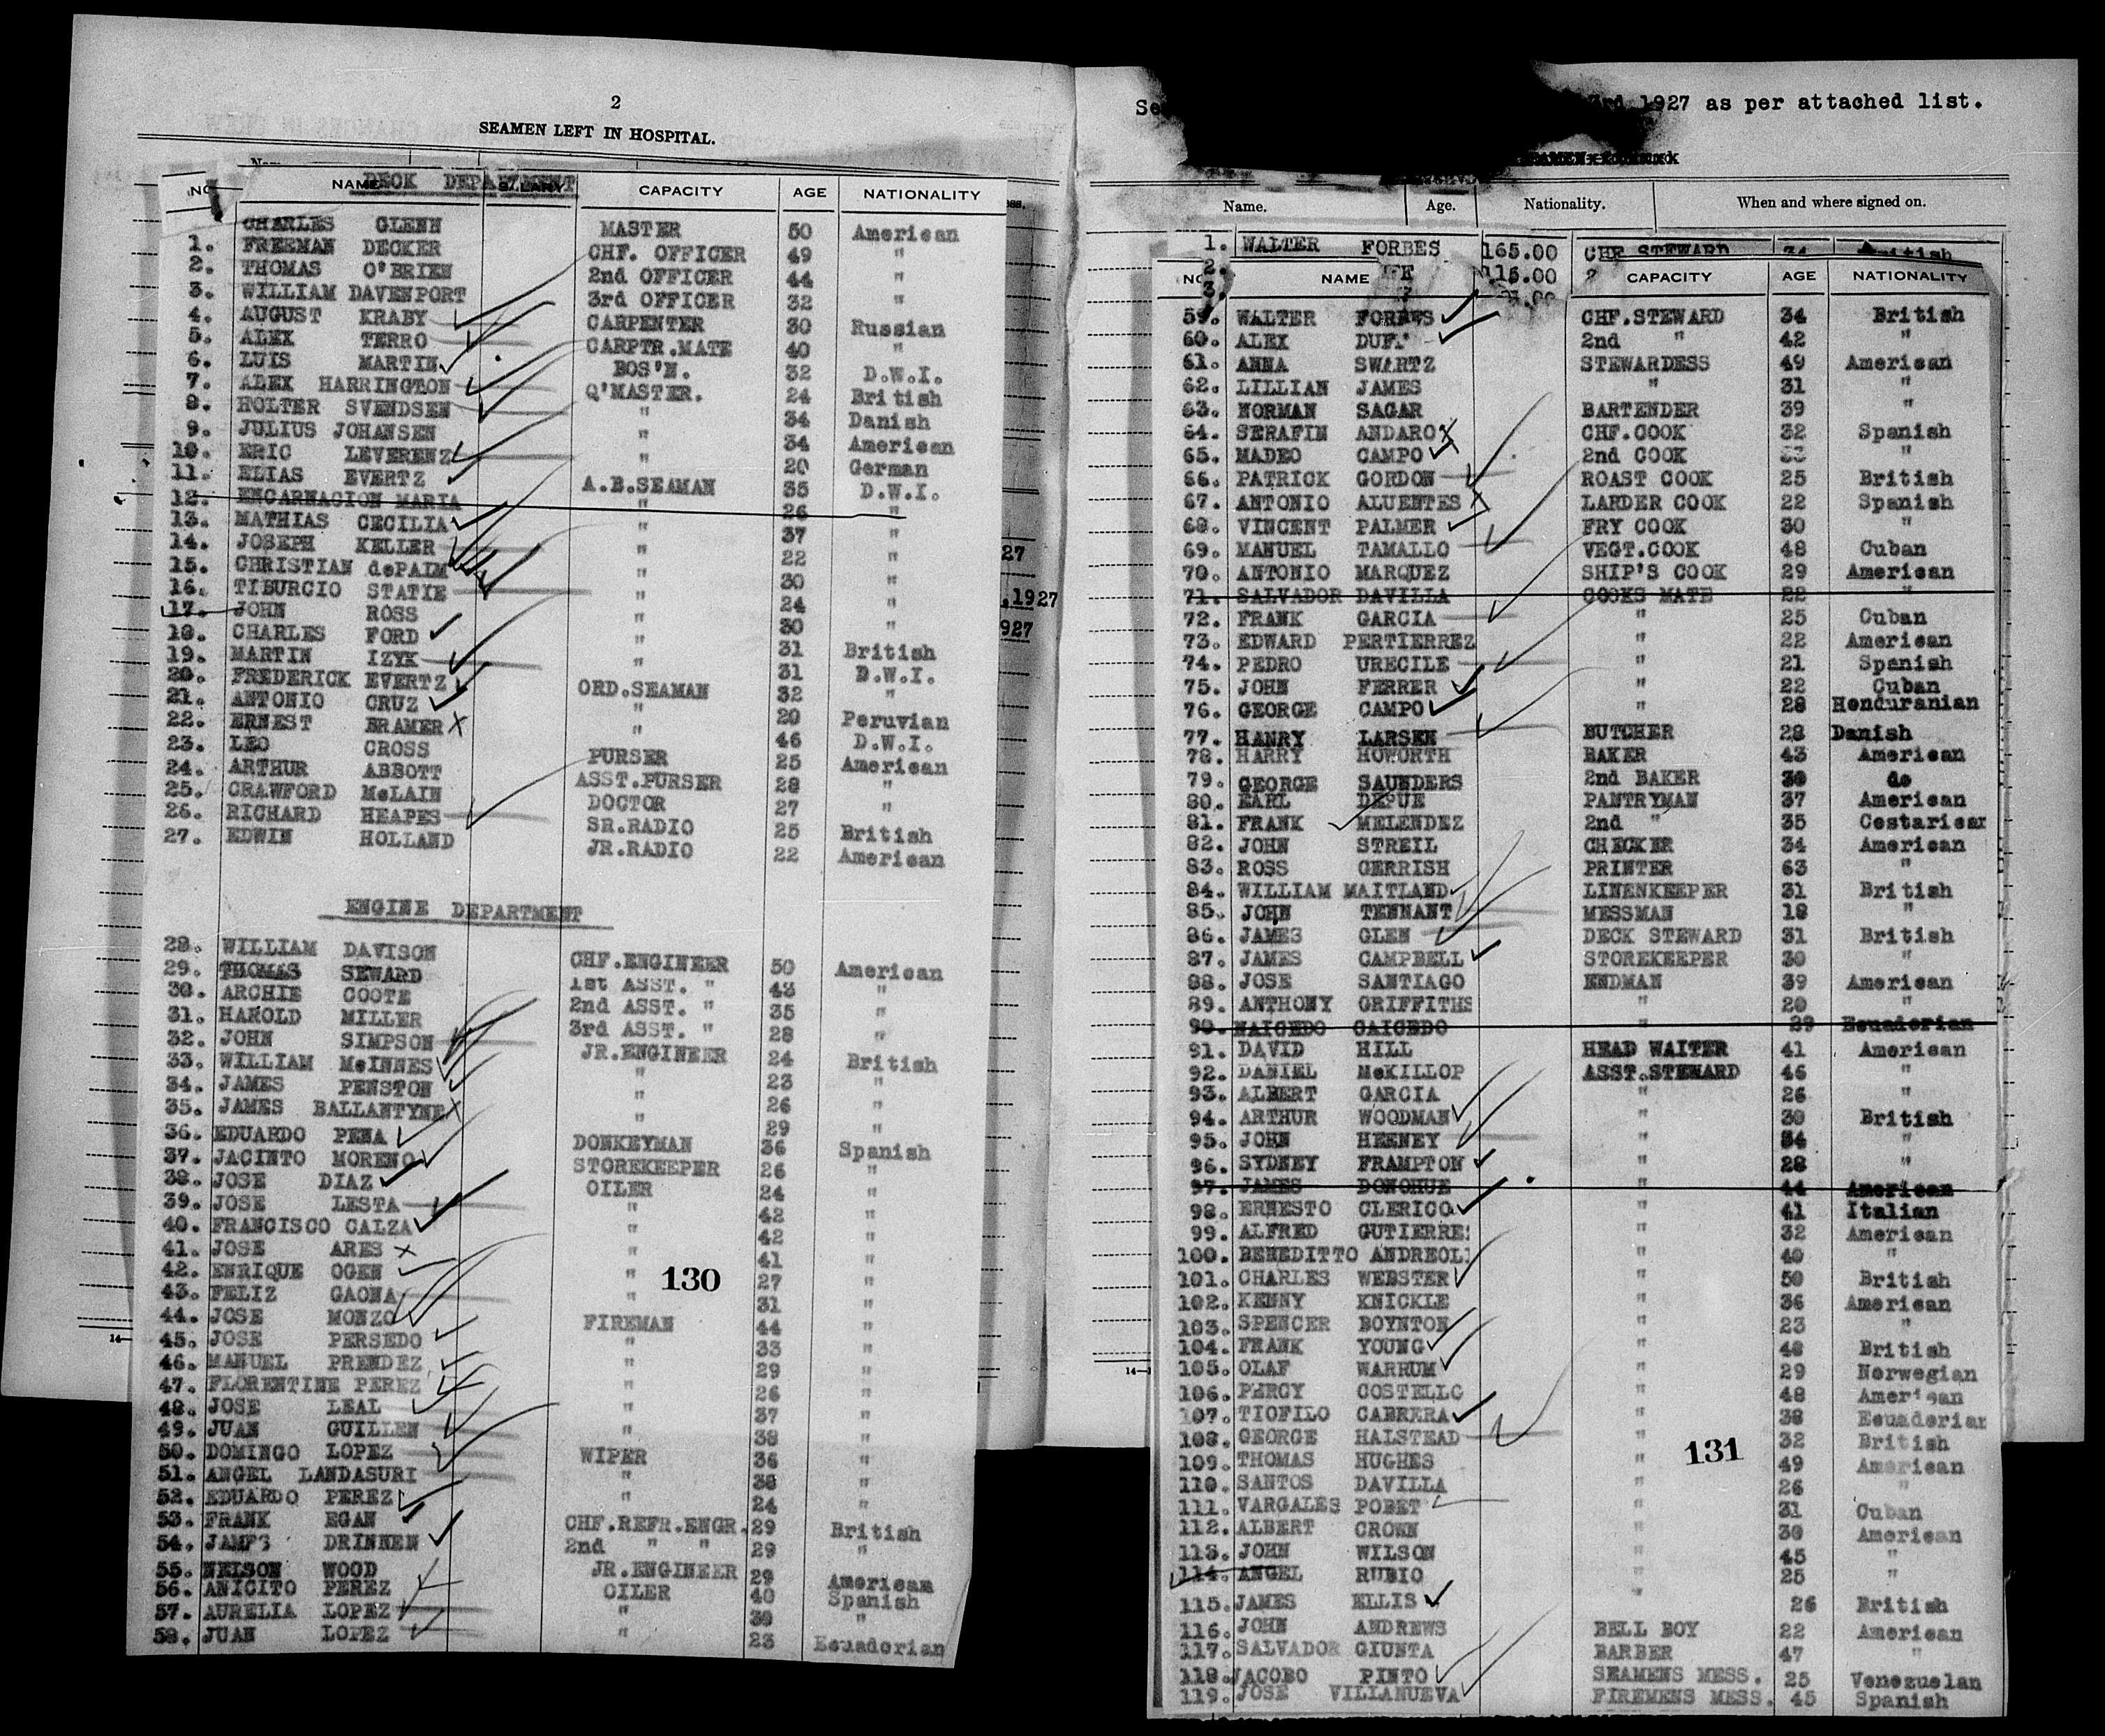 2
SEAMEN LEFT IN HOSPITAL.
DECK DEPARTMENT
NAME CAPACITY AGE NATIONALITY
CHARLES GLENN MASTER 50 American
1. FREEMAN DECKER CHF. OFFICER 49 "
2. THOMAS O'BRIEN 2nd OFFICER 44 "
3. WILLIAM DAVENPORT 3rd OFFICER 32 "
4. AUGUST KRABY CARPENTER 30 Russian
5. ALEX TERRO CARPTR.MATE 40 "
6. LUIS MARTIN BOS'N. 32 D.W.I.
7. ALEX HARRINGTON Q'MASTER. 24 British
8. HOLTER SVENDSEN " 34 Danish
9. JULIUS JOHANSEN " 34 American
10. ERIC LEVERENZ " 20 German
11. ELIAS EVERTZ A.B.SEAMAN 35 D.W.I.
12. ENCARNACION MARIA " 26 "
13. MATHIAS CECILIA " 37 "
14. JOSEPH KELLER " 22 "
15. CHRISTIAN dePALM " 30 "
16. TIBURCIO STATIE " 24 "
17. JOHN ROSS " 30 "
18. CHARLES FORD " 31 British
19. MARTIN IZYK " 31 D.W.I.
20. FREDERICK EVERTZ ORD.SEAMAN 32 "
21. ANTONIO CRUZ " 20 Peruvian
22. ERNEST BRAMER " 46 D.W.I.
23. LEO CROSS PURSER 25 American
24. ARTHUR ABBOTT ASST.PURSER 28 "
25. CRAWFORD McLAIN DOCTOR 27 "
26. RICHARD HEAPES SR.RADIO 25 British
27. EDWIN HOLLAND JR.RADIO 22 American
ENGINE DEPARTMENT
28. WILLIAM DAVISON CHF.ENGINEER 50 American
29. THOMAS SEWARD 1st ASST. " 43 "
30. ARCHIE COOTE 2nd ASST. " 35 "
31. HAROLD MILLER 3rd ASST. " 28 "
32. JOHN SIMPSON JR.ENGINEER 24 British
33. WILLIAM McINNES " 23 "
34. JAMES PENSTON " 26 "
35. JAMES BALLANTYNE " 29 "
36. EDUARDO PENA DONKEYMAN 36 Spanish
37. JACINTO MORENO STOREKEEPER 26 "
38. JOSE DIAZ OILER 24 "
39. JOSE LESTA " 42 "
40. FRANCISCO CALZA " 42 "
41. JOSE ARES " 41 "
42. ENRIQUE OGEN " 27 "
43. FELIZ GAONA " 31 "
44. JOSE MONZO FIREMAN 44 "
45. JOSE PERSEDO " 33 "
46. MANUEL PRENDEZ " 29 "
47. FLORENTINE PEREZ " 26 "
48. JOSE LEAL " 37 "
49. JUAN GUILLEN " 38 "
50. DOMINGO LOPEZ WIPER 36 "
51. ANGEL LANDASURI " 38 "
52. EDUARDO PEREZ " 24 "
53. FRANK EGAN CHF.REFR.ENGR. 29 British
54. JAMES DRINNEN 2nd " " 29 "
55. NELSON WOOD JR.ENGINEER 29 American
56. ANICITO PEREZ OILER 40 Spanish
57. AURELIA LOPEZ " 39 "
58. JUAN LOPEZ " 23 Ecuadorian
130
27
.1927
927
14—
3rd 1927 as per attached list.
Name. Age. Nationality. When and where signed on.
1. WALTER FORBES 165.00 CHF STEWARD 34 British
2. 115.00 2
3.
NAME CAPACITY AGE NATIONALITY
59. WALTER FORBES CHF.STEWARD 34 British
60. ALEX DUFF 2nd " 42 "
61. ANNA SWARTZ STEWARDESS 49 American
62. LILLIAN JAMES " 31 "
63. NORMAN SAGAR BARTENDER 39 "
64. SERAFIN ANDARO CHF.COOK 32 Spanish
65. MADEO CAMPO 2nd COOK 33 "
66. PATRICK GORDON ROAST COOK 25 British
67. ANTONIO ALUENTES LARDER COOK 22 Spanish
68. VINCENT PALMER FRY COOK 30 "
69. MANUEL TAMALLO VEGT.COOK 48 Cuban
70. ANTONIO MARQUEZ SHIP'S COOK 29 American
71. SALVADOR DAVILLA COOKS MATE 22 "
72. FRANK GARCIA " 25 Cuban
73. EDWARD PERTIERREZ " 22 American
74. PEDRO URECILE " 21 Spanish
75. JOHN FERRER " 22 Cuban
76. GEORGE CAMPO " 28 Honduranian
77. HANRY LARSEN BUTCHER 28 Danish
78. HARRY HOWORTH BAKER 43 American
79. GEORGE SAUNDERS 2nd BAKER 30 do
80. EARL DEPUE PANTRYMAN 37 American
81. FRANK MELENDEZ 2nd " 35 Costarican
82. JOHN STREIL CHECKER 34 American
83. ROSS GERRISH PRINTER 63 "
84. WILLIAM MAITLAND LINENKEEPER 31 British
85. JOHN TENNANT MESSMAN 18 "
86. JAMES GLEN DECK STEWARD 31 British
87. JAMES CAMPBELL STOREKEEPER 30 "
88. JOSE SANTIAGO ENDMAN 39 American
89. ANTHONY GRIFFITHS " 20 "
90. NAICEDO CAICEDO " 29 Ecuadorian
91. DAVID HILL HEAD WAITER 41 American
92. DANIEL McKILLOP ASST.STEWARD 46 "
93. ALBERT GARCIA " 26 "
94. ARTHUR WOODMAN " 30 British
95. JOHN HEENEY " 34 "
96. SYDNEY FRAMPTON " 28 "
97. JAMES DONOHUE " 44 American
98. ERNESTO CLERICO " 41 Italian
99. ALFRED GUTIERRE " 32 American
100. BENEDITTO ANDREOL " 40 "
101. CHARLES WEBSTER " 50 British
102. KENNY KNICKLE " 36 American
103. SPENCER BOYNTON " 23 "
104. FRANK YOUNG " 48 British
105. OLAF WARRUM " 29 Norwegian
106. PERCY COSTELLO " 48 American
107. TIOFILO CABRERA " 38 Ecuadorian
108. GEORGE HALSTEAD " 32 British
109. THOMAS HUGHES " 49 American
110. SANTOS DAVILLA " 26 "
111. VARGALES POBET " 31 Cuban
112. ALBERT CROWN " 30 American
113. JOHN WILSON " 45 "
114. ANGEL RUBIO " 25 "
115. JAMES ELLIS " 26 British
116. JOHN ANDREWS BELL BOY 22 American
117. SALVADOR GIUNTA BARBER 47 "
118. JACOBO PINTO SEAMENS MESS. 25 Venezuelan
119. JOSE VILLANUEVA FIREMENS MESS. 45 Spanish
131
14—